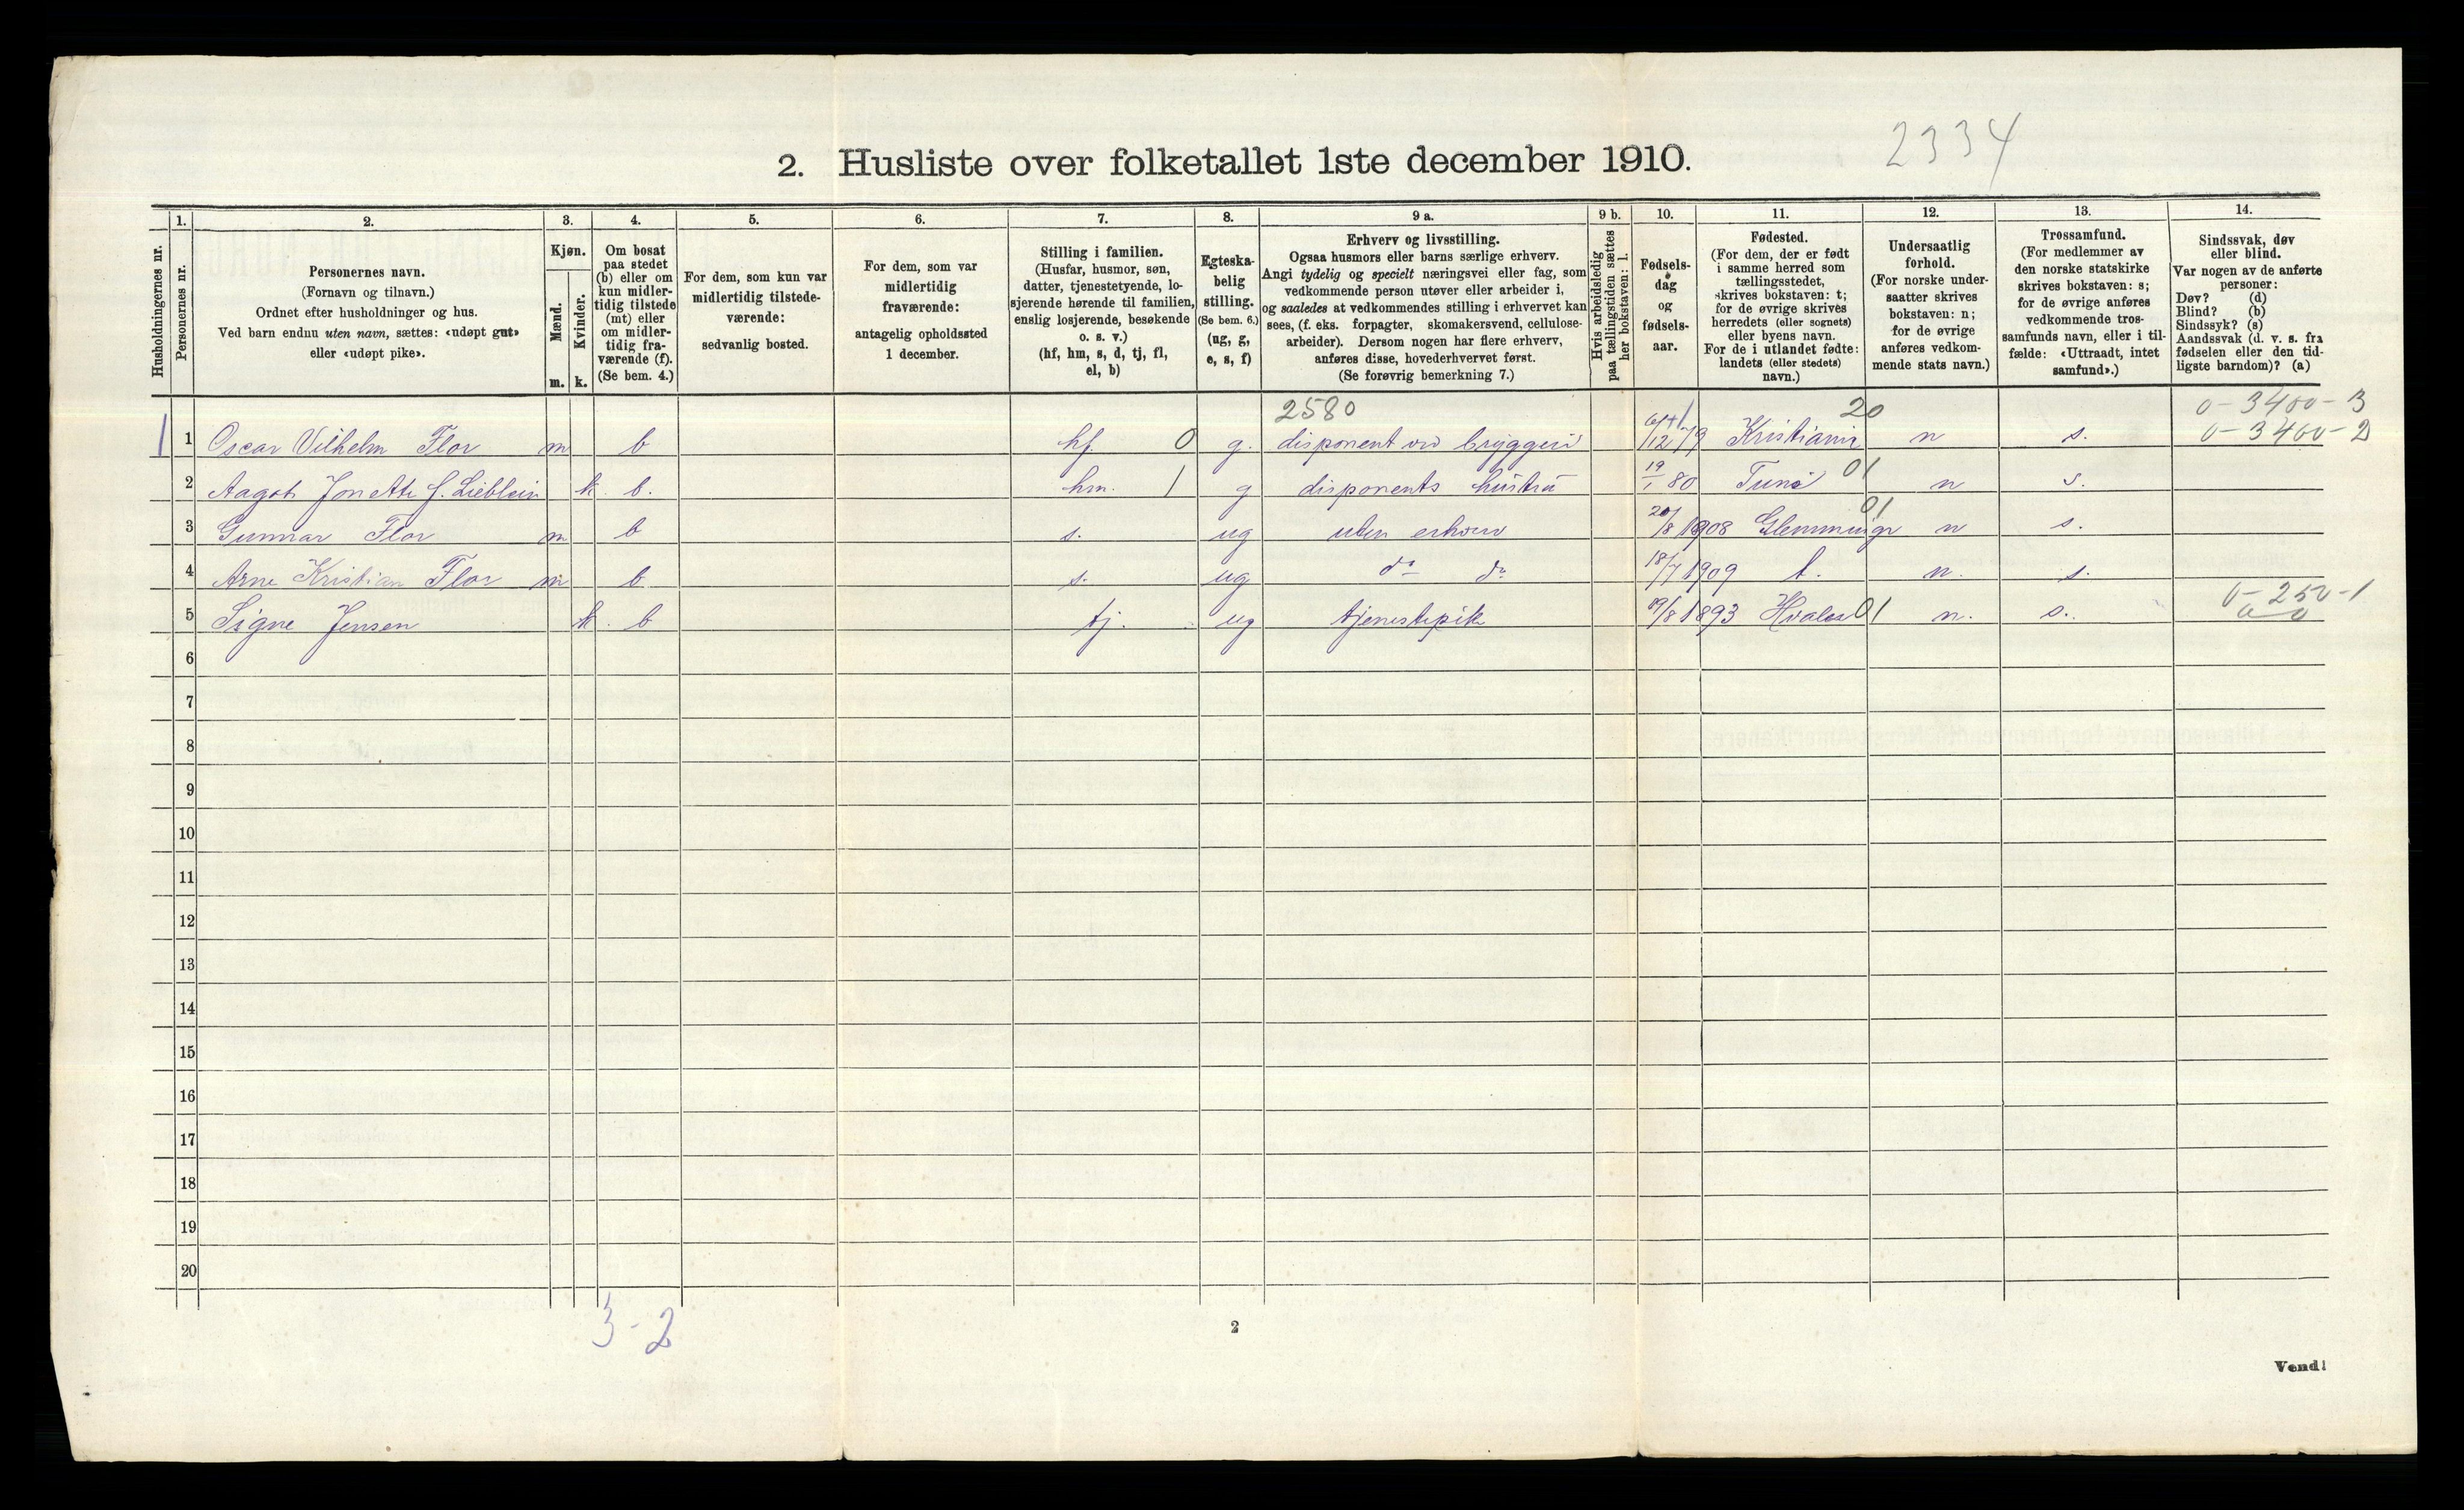 2334
2. Husliste over folketallet 1ste december 1910.
Husholdningernes nr.
1. Personernes nr.
2. Personernes navn. (Fornavn og tilnavn.) Ordnet efter husholdninger og hus. Ved barn endnu uten navn, sættes: «udøpt gut» eller «udøpt pike».
3. Kjøn. Mænd. m. Kvinder. k.
4. Om bosat paa stedet (b) eller om kun midler-tidig tilstede (mt) eller om midler-tidig fra-værende (f). (Se bem. 4.)
5. For dem, som kun var midlertidig tilstede-værende: sedvanlig bosted.
6. For dem, som var midlertidig fraværende: antagelig opholdssted 1 december.
7. Stilling i familien. (Husfar, husmor, søn, datter, tjenestetyende, lo-sjerende hørende til familien, enslig losjerende, besøkende o. s. v.) (hf, hm, s, d, tj, fl, el, b)
8. Egteska-belig stilling. (Se bem. 6.) (ug, g, e, s, f)
9 a. Erhverv og livsstilling. Ogsaa husmors eller barns særlige erhverv. Angi tydelig og specielt næringsvei eller fag, som vedkommende person utøver eller arbeider i, og saaledes at vedkommendes stilling i erhvervet kan sees, (f. eks. forpagter, skomakersvend, cellulose-arbeider). Dersom nogen har flere erhverv, anføres disse, hovederhvervet først. (Se forøvrig bemerkning 7.)
9 b. Hvis arbeidsledig paa tællingstiden sættes her bokstaven: l.
10. Fødsels-dag og fødsels-aar.
11. Fødested. (For dem, der er født i samme herred som tællingsstedet, skrives bokstaven: t; for de øvrige skrives herredets (eller sognets) eller byens navn. For de i utlandet fødte: landets (eller stedets) navn.)
12. Undersaatlig forhold. (For norske under-saatter skrives bokstaven: n; for de øvrige anføres vedkom-mende stats navn.)
13. Trossamfund. (For medlemmer av den norske statskirke skrives bokstaven: s; for de øvrige anføres vedkommende tros-samfunds navn, eller i til-fælde: «Uttraadt, intet samfund».)
14. Sindssvak, døv eller blind. Var nogen av de anførte personer: Døv? (d) Blind? (b) Sindssyk? (s) Aandssvak (d. v. s. fra fødselen eller den tid-ligste barndom)? (a)
2580 20 0-3400-3
1 1 Oscar Vilhelm Flor m b hf. 0 g. disponent ved bryggeri 12 79 Kristiania n s. 0-3400-2
2 Aagot Jonette f. Lieblein k. b. hm. 1 g disponents hustru 19/1 80 Tune 01 n s.
3 Gunnar Flor m b s. ug uten erhverv 20/8 1908 Glemminge 01 n s.
4 Arne Kristian Flor m b s. ug do do 18/7 1909 t. n. s.
5 Signe Jensen k. b tj. ug tjenestepike /8 1893 Hvaler 01 n. s. 0-250-1
0-0
6
7
8
9
10
11
12
13
14
15
16
17
18
19
20
3-2
2
Vend!